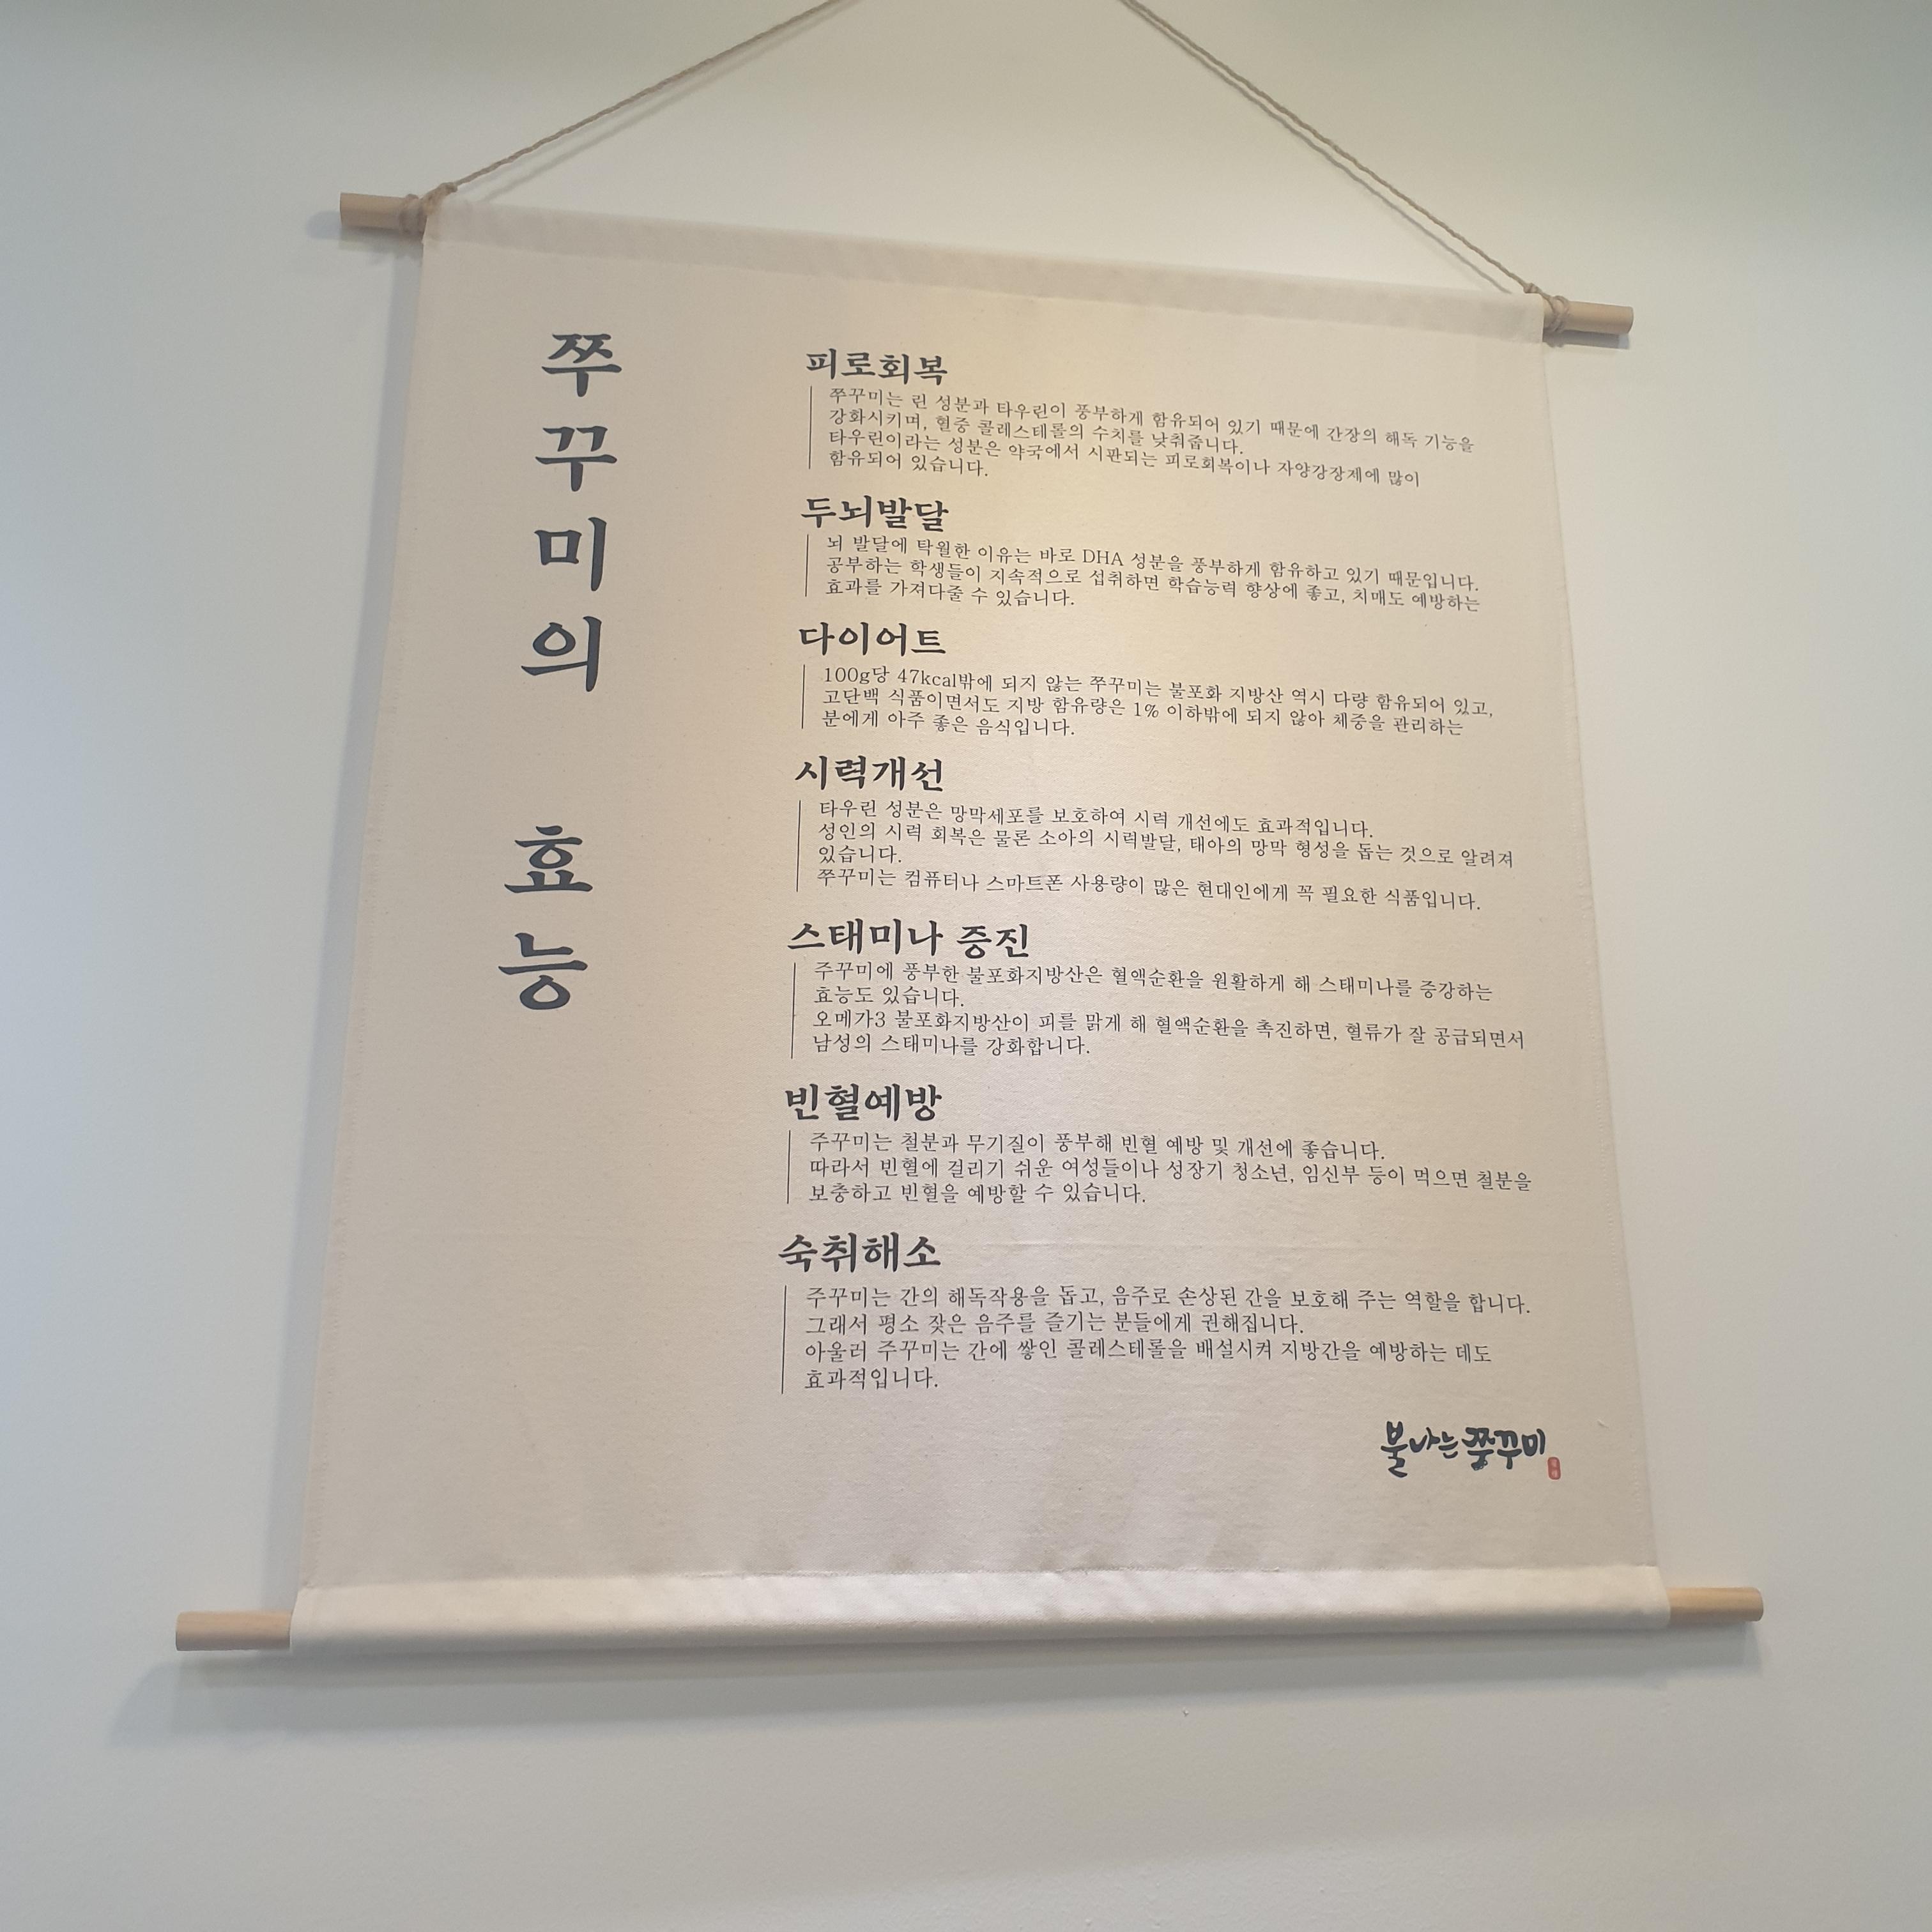 쭈꾸미의 효능
피로회복
쭈꾸미는 린 성분과 타우린이 풍부하게 함유되어 있기 때문에 간장의 해독 기능을
강화시키며, 혈중 콜레스테롤의 수치를 낮춰줍니다.
타우린이라는 성분은 약국에서 시판되는 피로회복이나 자양강장제에 많이
함유되어 있습니다.
두뇌발달
뇌 발달에 탁월한 이유는 바로 DHA 성분을 풍부하게 함유하고 있기 때문입니다.
공부하는 학생들이 지속적으로 섭취하면 학습능력 향상에 좋고, 치매도 예방하는
효과를 가져다줄 수 있습니다.
다이어트
100g당 47kcal밖에 되지 않는 쭈꾸미는 불포화 지방산 역시 다량 함유되어 있고,
고단백 식품이면서도 지방 함유량은 1% 이하밖에 되지 않아 체중을 관리하는
분에게 아주 좋은 음식입니다.
시력개선
타우린 성분은 망막세포를 보호하여 시력 개선에도 효과적입니다.
성인의 시력 회복은 물론 소아의 시력발달, 태아의 망막 형성을 돕는 것으로 알려져
있습니다.
쭈꾸미는 컴퓨터나 스마트폰 사용량이 많은 현대인에게 꼭 필요한 식품입니다.
스태미나 증진
주꾸미에 풍부한 불포화지방산은 혈액순환을 원활하게 해 스태미나를 증강하는
효능도 있습니다.
오메가3 불포화지방산이 피를 맑게 해 혈액순환을 촉진하면, 혈류가 잘 공급되면서
남성의 스태미나를 강화합니다.
빈혈예방
주꾸미는 철분과 무기질이 풍부해 빈혈 예방 및 개선에 좋습니다.
따라서 빈혈에 걸리기 쉬운 여성들이나 성장기 청소년, 임신부 등이 먹으면 철분을
보충하고 빈혈을 예방할 수 있습니다.
숙취해소
주꾸미는 간의 해독작용을 돕고, 음주로 손상된 간을 보호해 주는 역할을 합니다.
그래서 평소 잦은 음주를 즐기는 분들에게 권해집니다.
아울러 주꾸미는 간에 쌓인 콜레스테롤을 배설시켜 지방간을 예방하는 데도
효과적입니다.
불나는 쭝꾸미